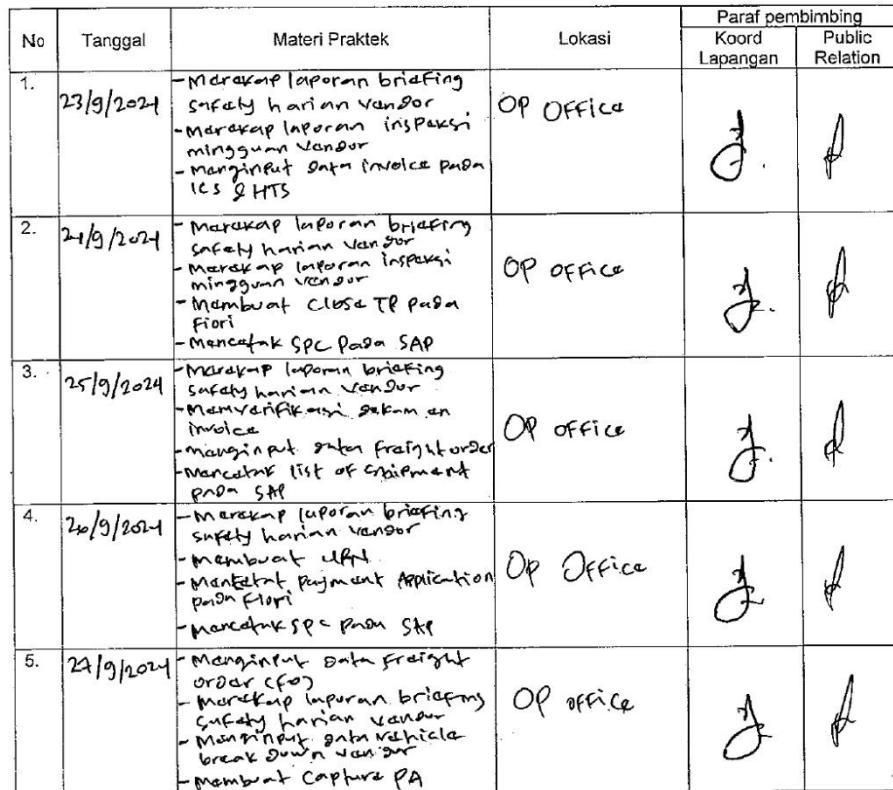 No Tanggal Materi Praktek Lokasi Paraf pembimbing
Koord Lapangan Public Relation
1. 23/9/2024 - Merekap laporan briefing OP Office
safety harian vendor
- Merekap laporan inspeksi
mingguan vendor
- Menginput data invoice pada
ICS & HTS
2. 24/9/2024 - Merekap laporan briefing OP office
safety harian vendor
- Merekap laporan inspeksi
mingguan vendor
- Membuat Close TP pada
Fiori
- Mencetak SPC pada SAP
3. 25/9/2024 - Merekap laporan briefing OP office
safety harian vendor
- Memverifikasi dokumen
invoice
- Menginput data freight order
- Mencetak list of shipment
pada SAP
4. 26/9/2024 - Merekap laporan briefing Op Office
safety harian vendor
- Membuat
- Mencetak Payment Application
pada Fiori
- Mencetak SPC pada SAP
5. 27/9/2024 - Menginput data freight OP office
order (FO)
- Merekap laporan briefing
safety harian vendor
- Menginput data vehicle
break down vendor
- Membuat Capture PA